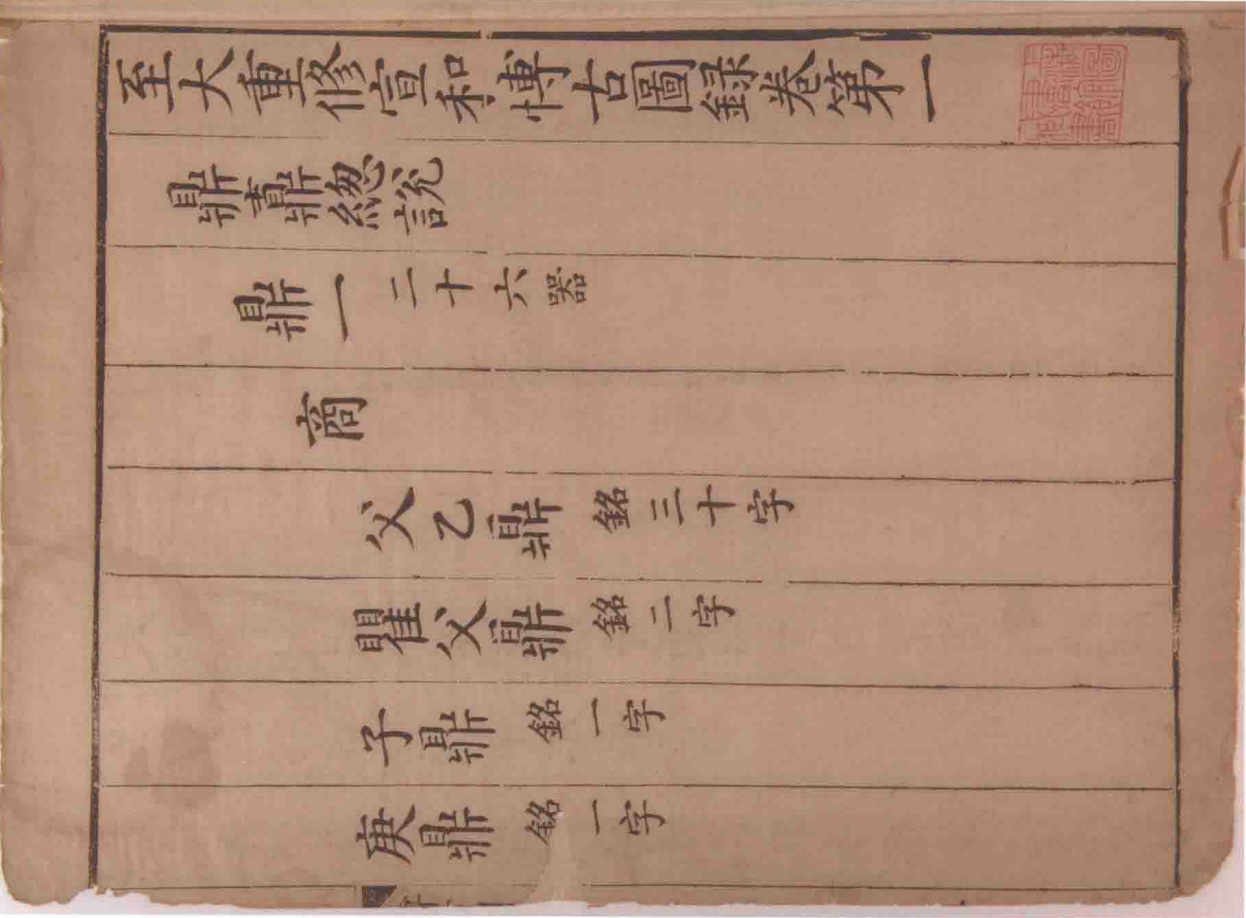 至大重修宣和愽古圖録卷第一
鼎鼒緫説
鼎一 二十六器
商
父乙鼎 銘三十字
瞿父鼎 銘二字
子鼎 銘一字
庚鼎 銘一字